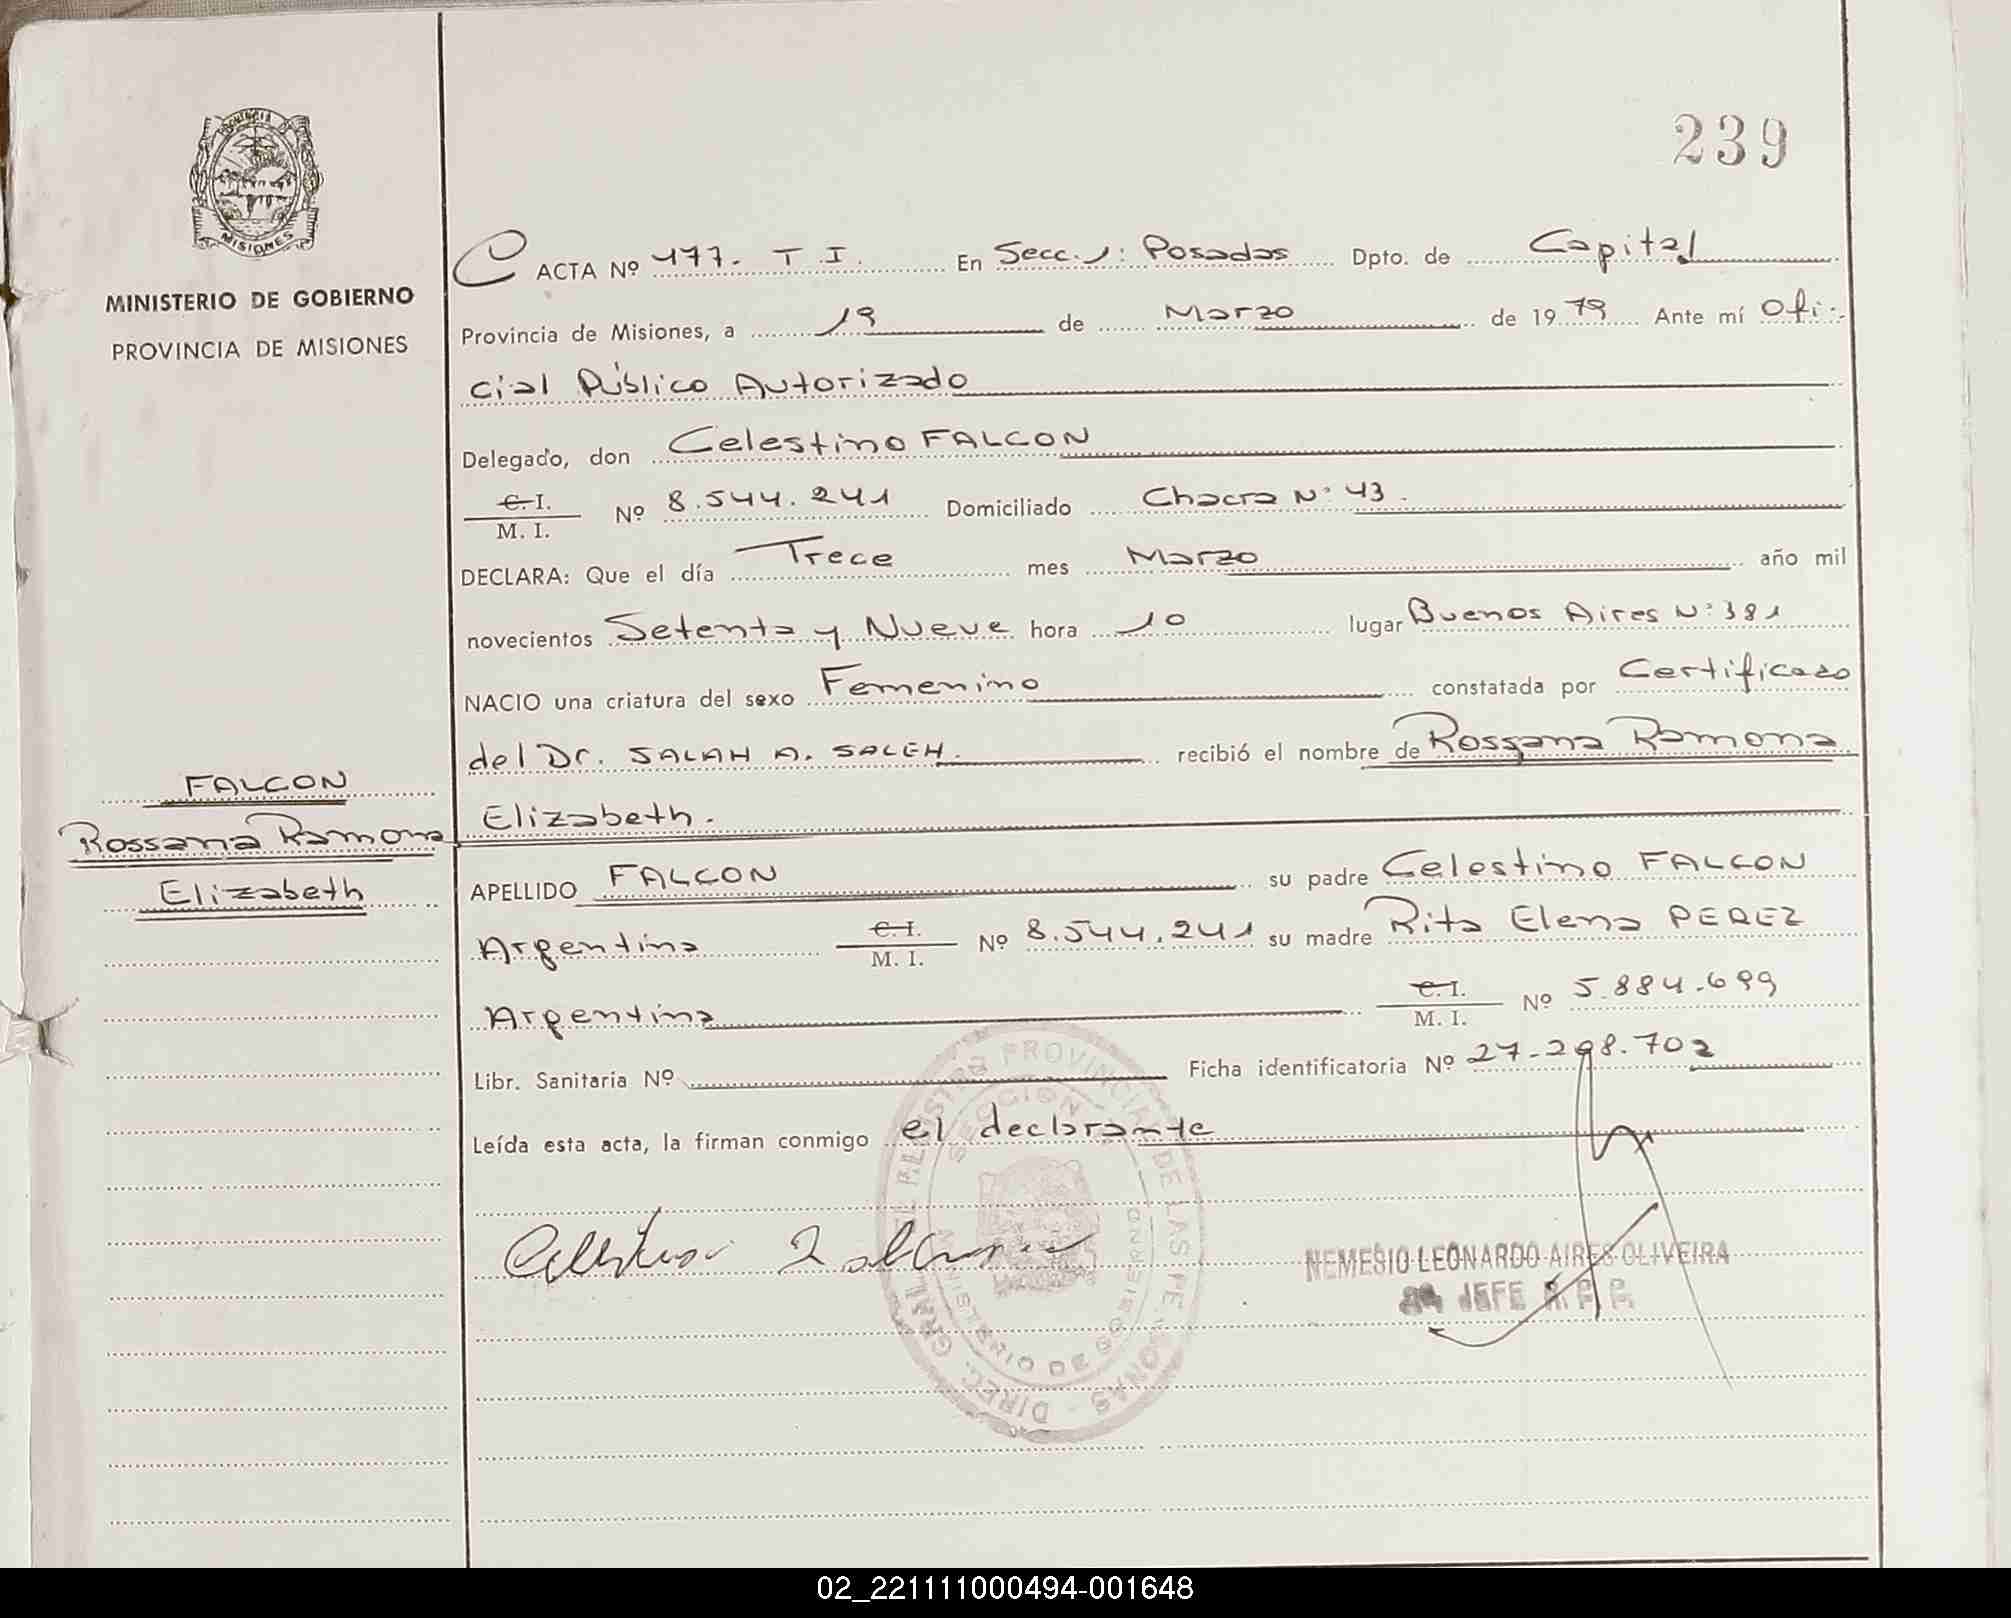 239
PROVINCIA DE
MISIONES
MINISTERIO DE GOBIERNO
PROVINCIA DE MISIONES
FALCON
Rossana Ramona
Elizabeth
ACTA Nº 177. T I. En Secc. 1: Posadas Dpto. de Capital
Provincia de Misiones, a 19 de Marzo de 1979 Ante mí Ofi-
cial Público Autorizado
Delegado, don Celestino FALCON
C. I.
M. I. Nº 8.544.241 Domiciliado Chacra Nº 43.
DECLARA: Que el día Trece mes Marzo año mil
novecientos Setenta y Nueve hora 10 lugar Buenos Aires Nº 381
NACIO una criatura del sexo Femenino constatada por Certificado
del Dr. SALAH A. SALEH. recibió el nombre de Rossana Ramona
Elizabeth.
APELLIDO FALCON su padre Celestino FALCON
Argentina C. I.
M. I. Nº 8.544.241 su madre Rita Elena PEREZ
Argentina C. I.
M. I. Nº 5.884.699
Libr. Sanitaria Nº Ficha identificatoria Nº 27-298.702
Leída esta acta, la firman conmigo el declarante
Celestino Falcon
NEMESIO LEONARDO AIRES OLIVEIRA
JEFE R. P. P.
DIREC. GRAL. DEL REGISTRO PROVINCIAL DE LAS PERSONAS
MINISTERIO DE GOBIERNO
02_221111000494-001648